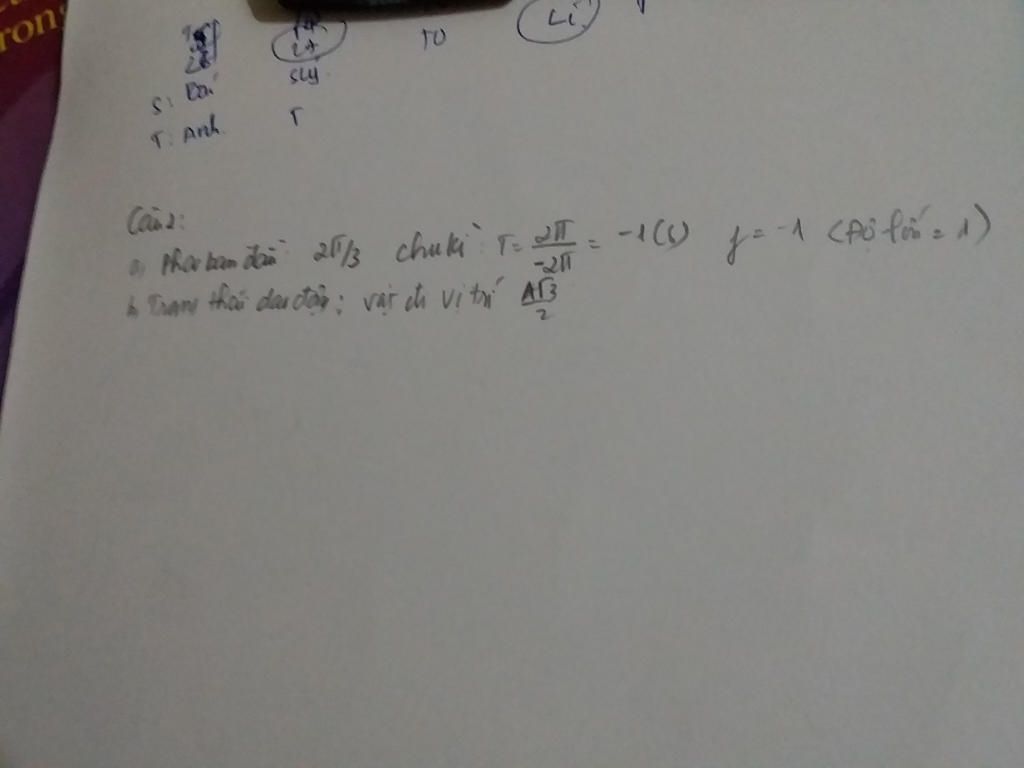 ron
LÍ
S: Đôi Slý
T: Anh. T
Câu 2:
a, Pha ban đầu 2π/3 chu kì: T = 2π/-2π = -1(s) f = -1 (Độ lớn = 1)
b, Trạng thái dao động: vật ở vị trí A√3/2